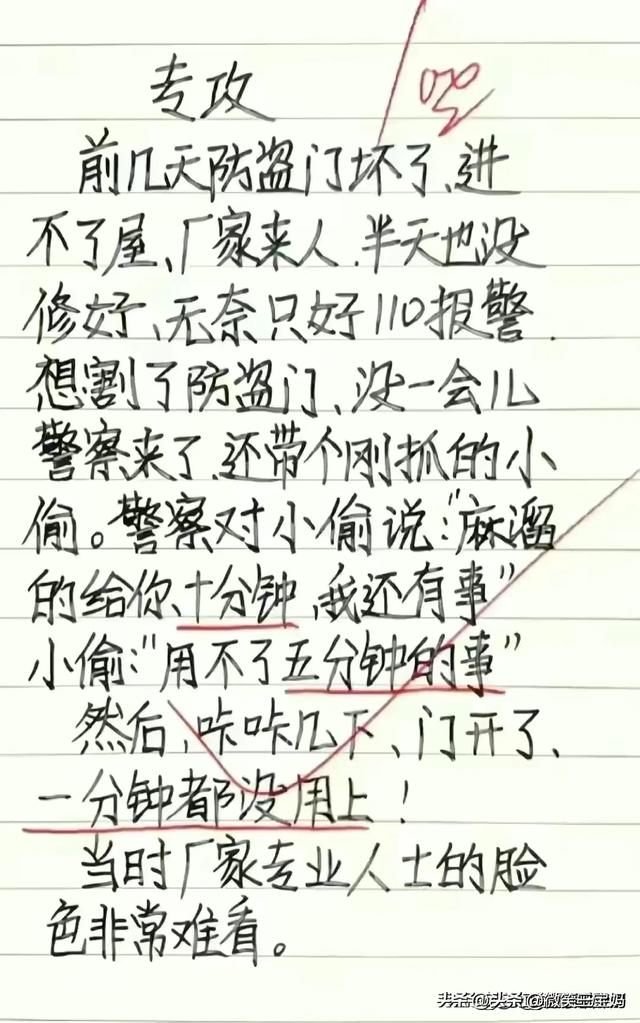 专攻
前几天防盗门坏了、进
不了屋、厂家来人.半天也没
修好、无奈只好110报警.
想割了防盗门、没一会儿
警察来了.还带个刚抓的小
偷。警察对小偷说:"麻溜
的给你、十分钟,我还有事"
小偷:"用不了五分钟的事"
然后,咔咔几下、门开了、
一分钟都没用上!
当时厂家专业人士的脸
色非常难看。